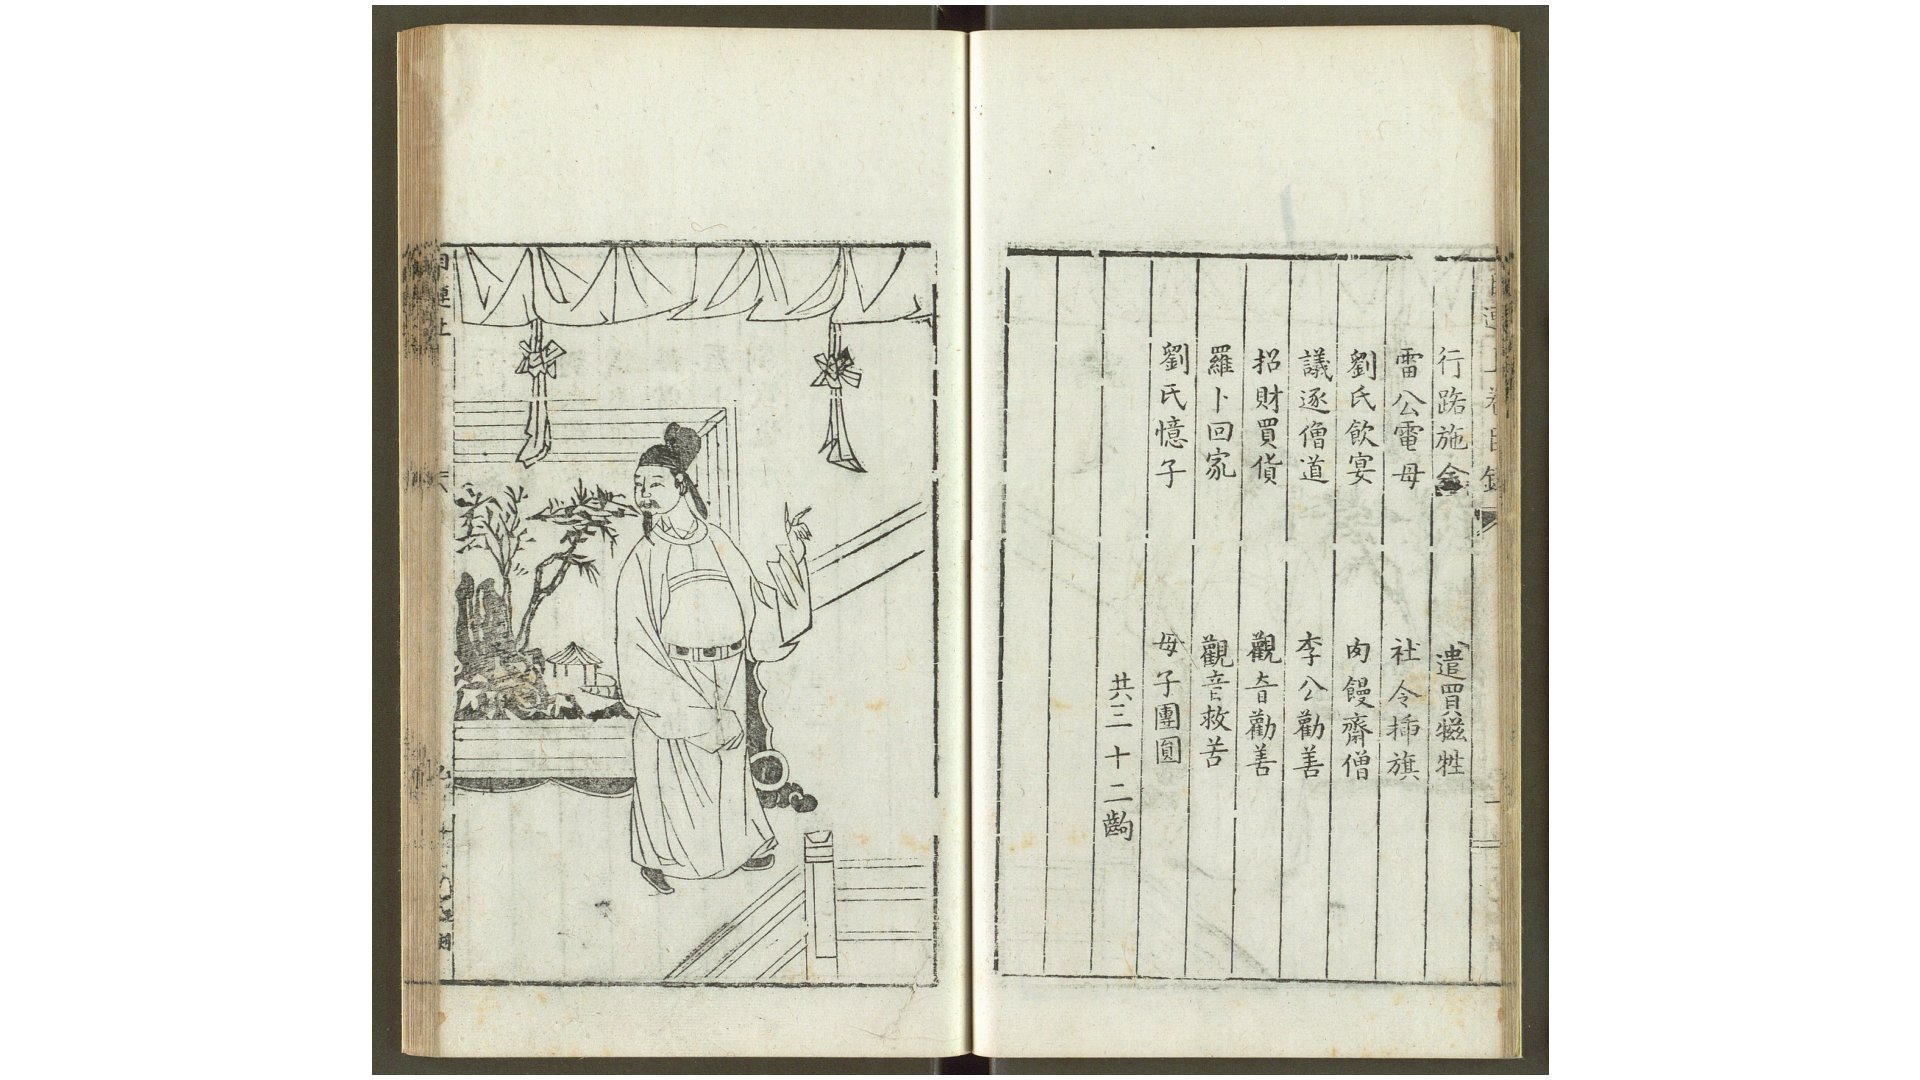 行路施金
遣買犧牲
雷公電母
社令插旗
劉氏飲宴
肉饅齋僧
議逐僧道
李公勸善
招財買貨
觀音勸善
羅卜回家
觀音救苦
劉氏憶子
母子團圓
共三十二齣